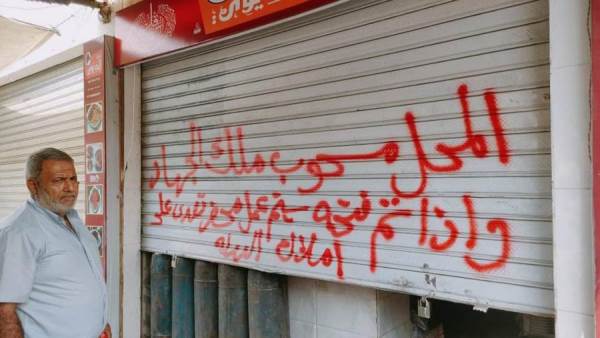 المحل مسحوب ملك الجهاد
واذا تم فتحه سيتم عمل محضر تعدى على
املاك الدوله